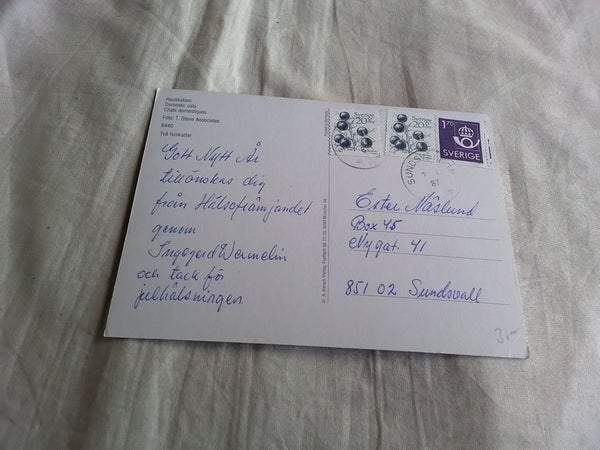 Hauskatzen
Domestic cats
Chats domestiques
Foto: T. Stone Associates
8440
Två huskatter
Gott Nytt År
tillönskas dig
från Hälsofrämjandet
genom
Ingegerd Wermelin
och tack för
julhälsningen
Sverige
20
Sverige
20
1.70
SVERIGE
SUND
Ester Näslund
Box 45
Nygat. 41
851 02 Sundsvall
3:-